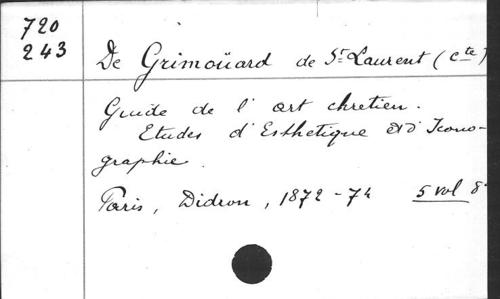 720
243
De Grimoüard de St Laurent (Cte)
Guide de l'art chretien.
Etudes d'Esthetique et d'Icono-
graphie.
Paris, Didron, 1872-74 5 vol 8°